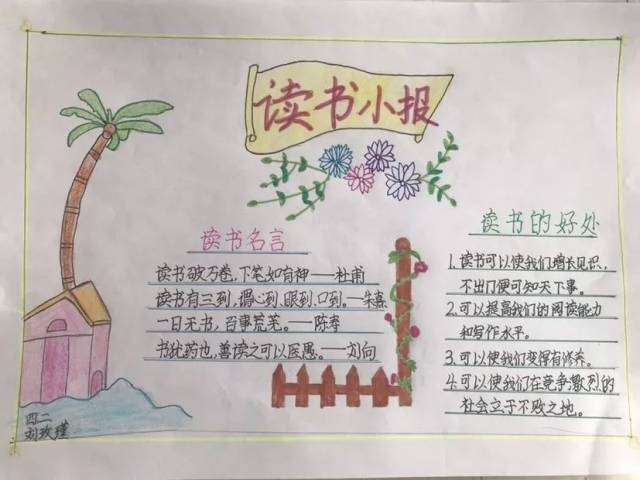 读书小报
读书名言
读书破万卷，下笔如有神——杜甫
读书有三到，谓心到，眼到，口到。——朱熹
一日无书，百事荒芜。——陈寿
书犹药也，善读之可以医愚。——刘向
读书的好处
1. 读书可以使我们增长见识，
不出门便可知天下事。
2. 可以提高我们的阅读能力
和写作水平。
3. 可以使我们变得有修养。
4. 可以使我们在竞争激烈的
社会立于不败之地。
四二
刘玫瑾